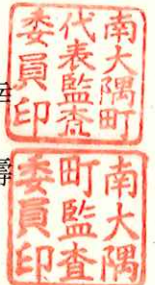 南大隅町
代表監査
委員印
南大隅
町監査
委員印